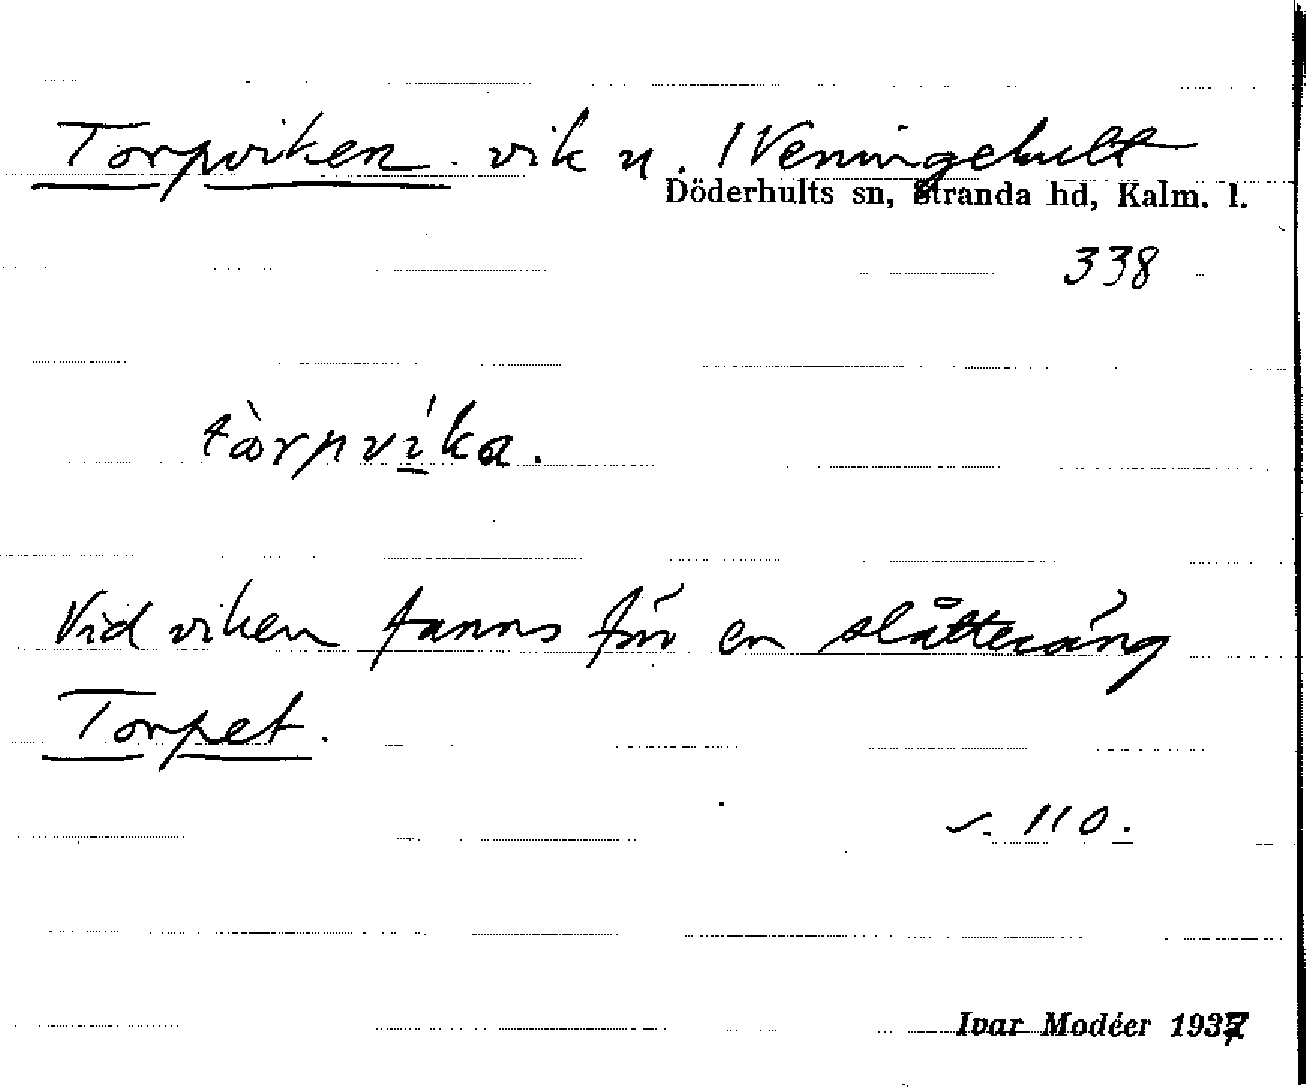 Torpviken. vik u. 1 Veningehult
Döderhults sn, Stranda hd, Kalm. l.
338
tòrpvíka.
Vid viken fanns förr en slåtteräng
Torpet.
s. 110.
Ivar Modéer 1937